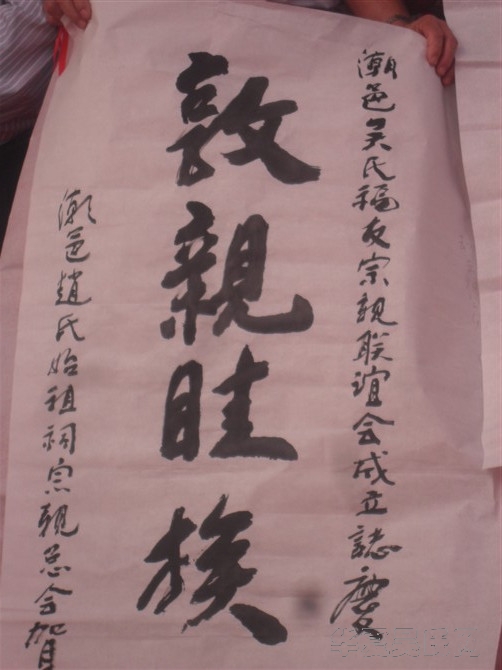 潮邑吴氏福友宗親联誼会成立誌慶
敦親睦族
潮邑趙氏始祖祠宗親总会賀